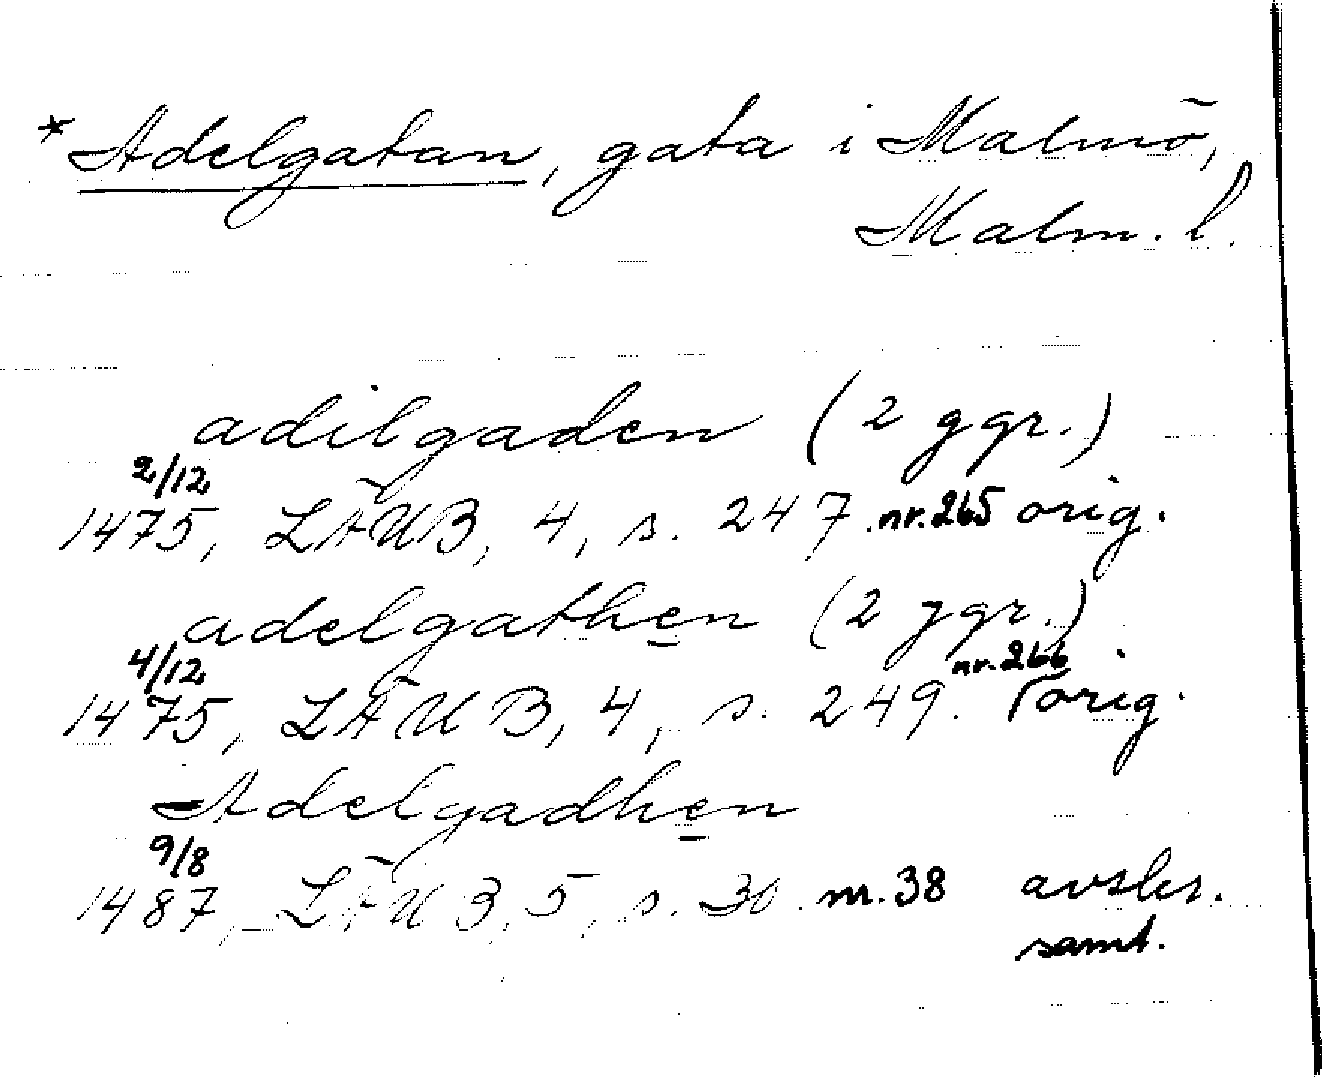 * Adelgatan, gata i Malmö,
Malm. l.
adilgaden (2 ggr.)
2/12
1475, LÄUB, 4, s. 247. nr. 265 orig.
adelgathen (2 ggr.)
4/12 nr. 266
1475, LÄUB, 4, s. 249. orig.
Adelgadhen
9/8
1487, LÄUB, 5, s. 30. nr. 38 avskr.
samt.